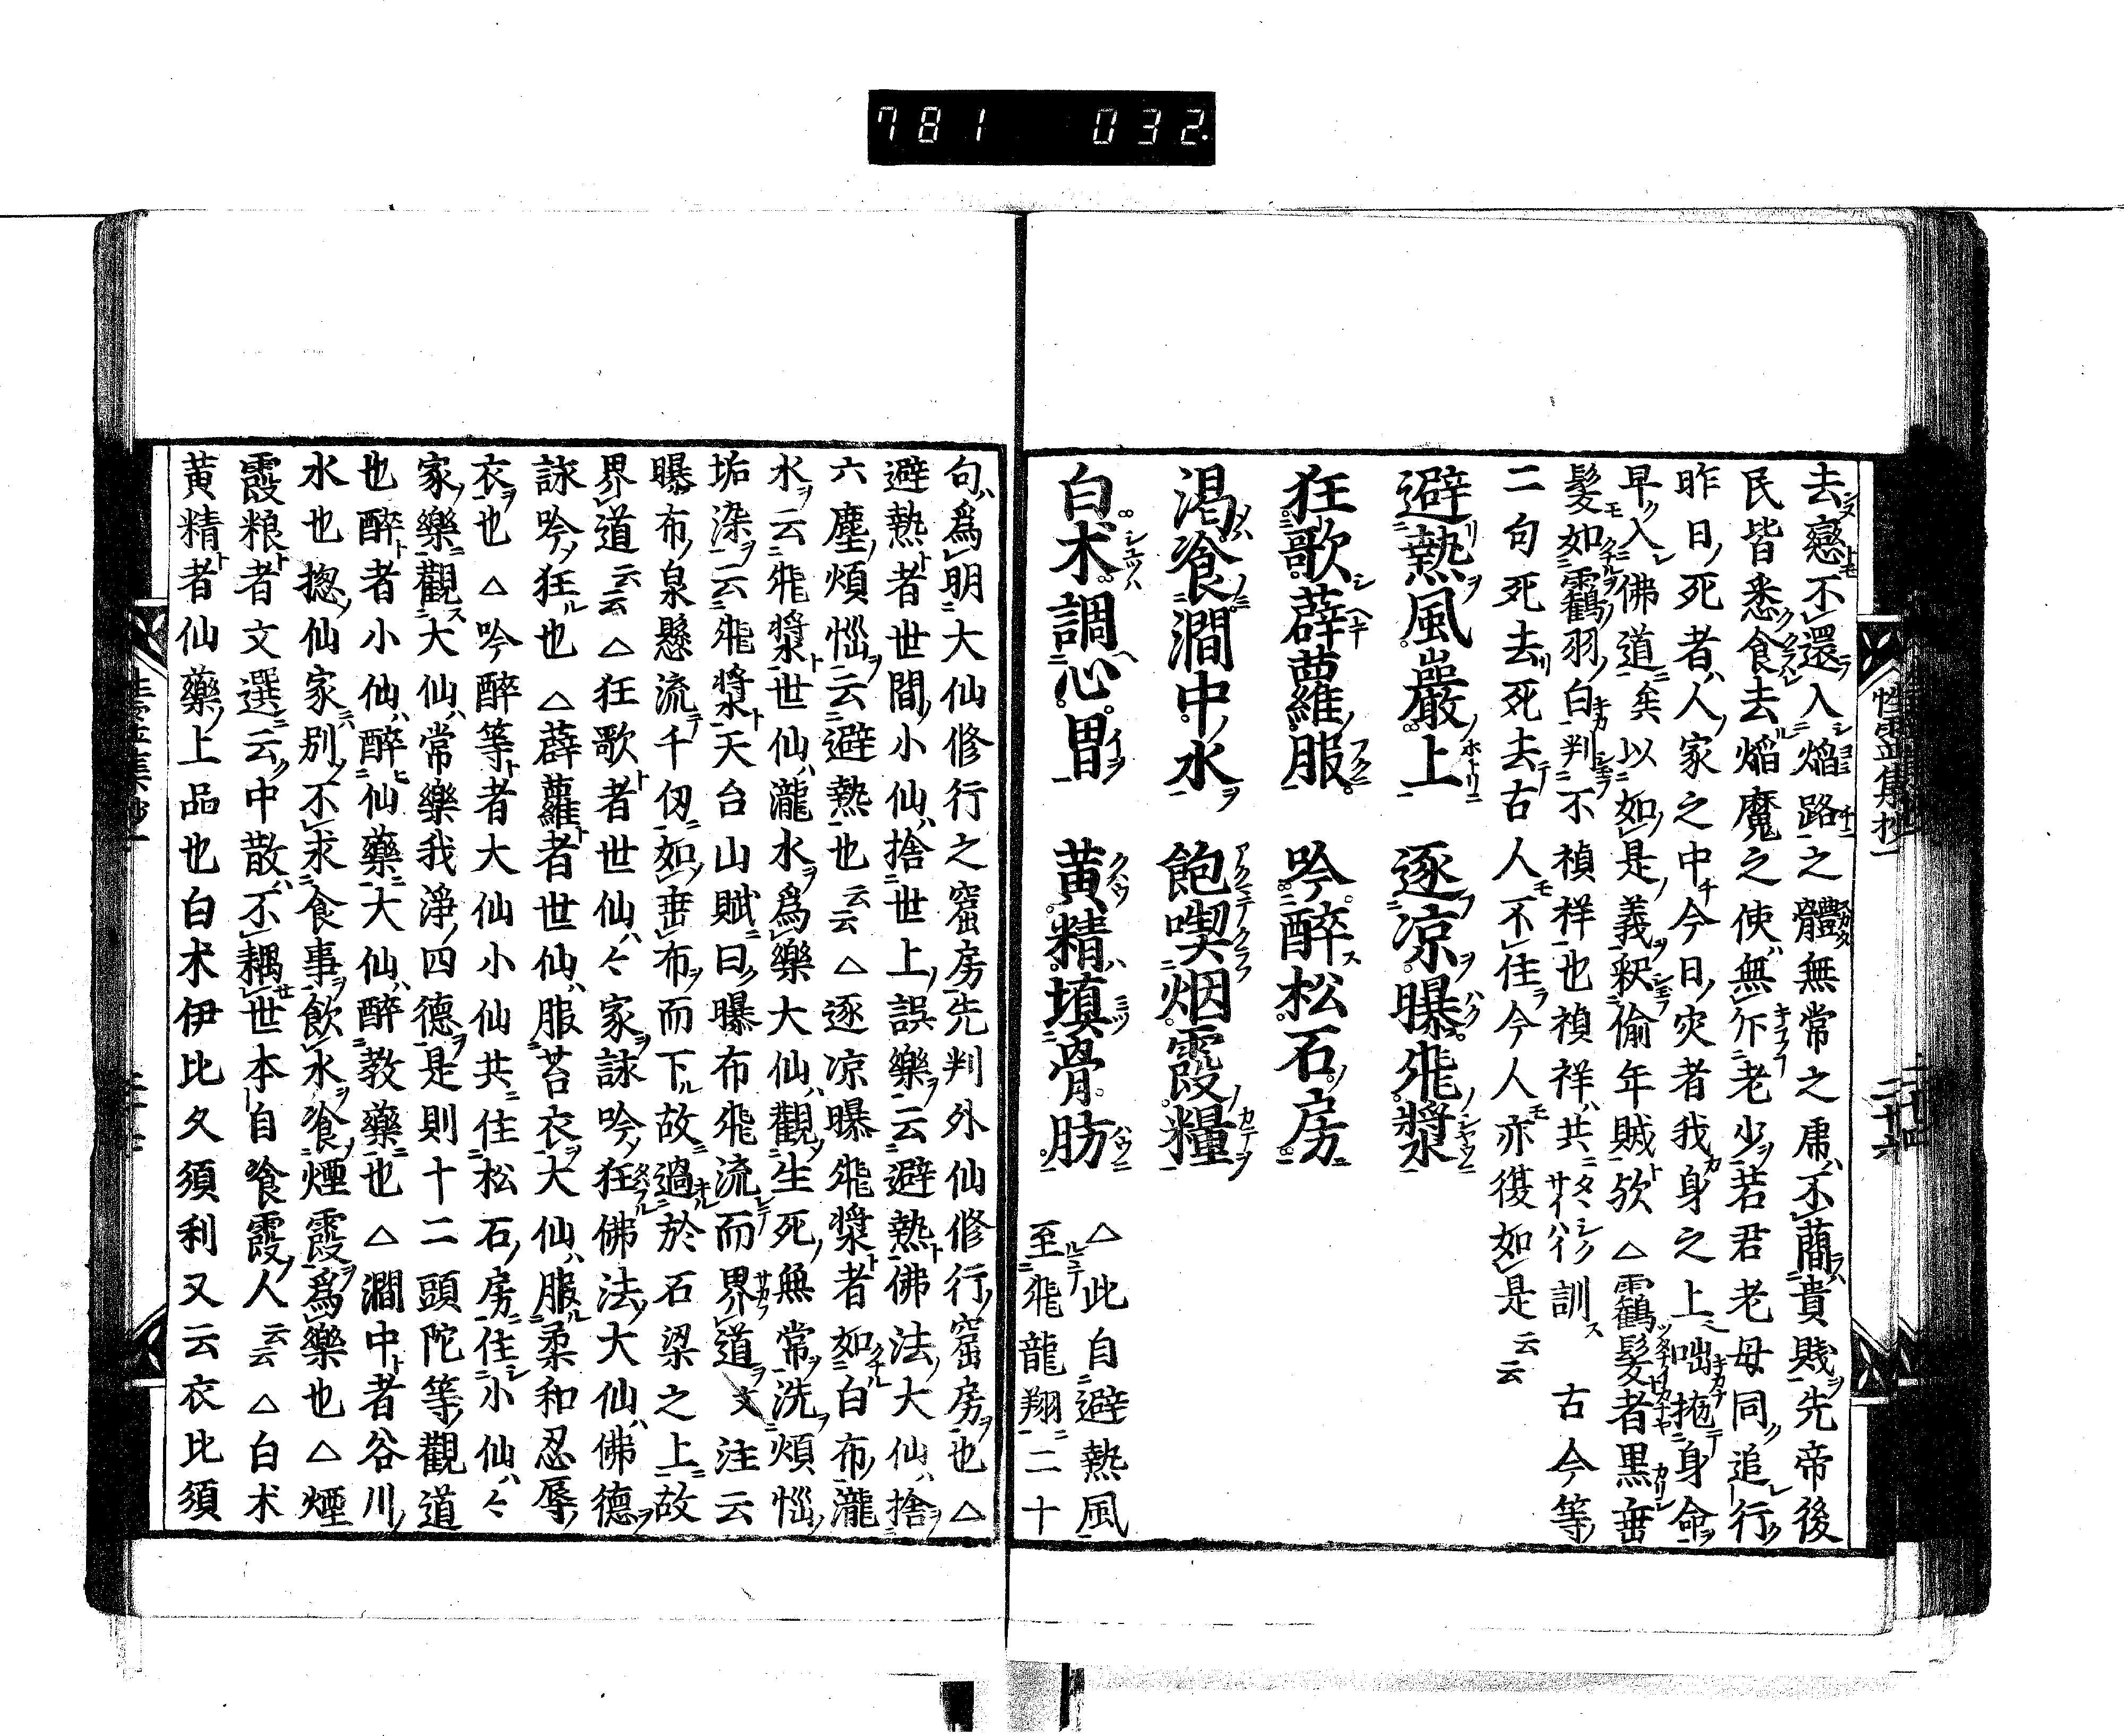 781 032
去戀不還入焰路之體無常之乕不蕳貴賤先帝後
民皆悉食去焔魔之使無尓老少若君老母同追行
昨日死者人家之中今日灾者我身之上咄拖身命
早入佛道矣以如是義釈偷年賊欤△靍髮者黒埀
髮如靍羽白判不禎祥也禎祥共訓 古今等
二句死去死去古人不住今人亦復如是云云
避熱風巖上 逐凉曝飛漿
狂歌薜蘿服 吟醉松石房
渇飡澗中水 飽喫烟霞糧
白朮調心胃 黄精填骨肪
△此自避熱風
至飛龍翔二十
句爲明大仙修行之窟房先判外仙修行窟房也△
避熱者世間小仙捨世上誤樂云避熱佛法大仙捨
六塵煩惱云避熱也云云△逐凉曝飛漿者如白布瀧
水云飛漿世仙瀧水爲樂大仙觀生死無常洗煩惱
垢染云飛漿天台山賦曰曝布飛流而界道文注云
曝布泉懸流千仭如埀布而下故過於石梁之上故
界道云云△狂歌者世仙ハ仝家詠吟狂佛法大仙佛德
詠吟狂也△薜蘿者世仙服苔衣大仙服柔和忍辱
衣也△吟醉等者大仙小仙共住松石房住小仙ハ仝
家樂觀大仙常樂我淨四德是則十二頭陀等觀道
也醉者小仙醉仙藥大仙醉教藥也△澗中者谷川
水也揔仙家別不求食事飲水飡煙霞爲樂也△煙
霞粮者文選云中散不耦世本自飡霞人云云△白朮
黄精者仙藥上品也白朮伊比夂須利又云衣比須
性霊集抄一